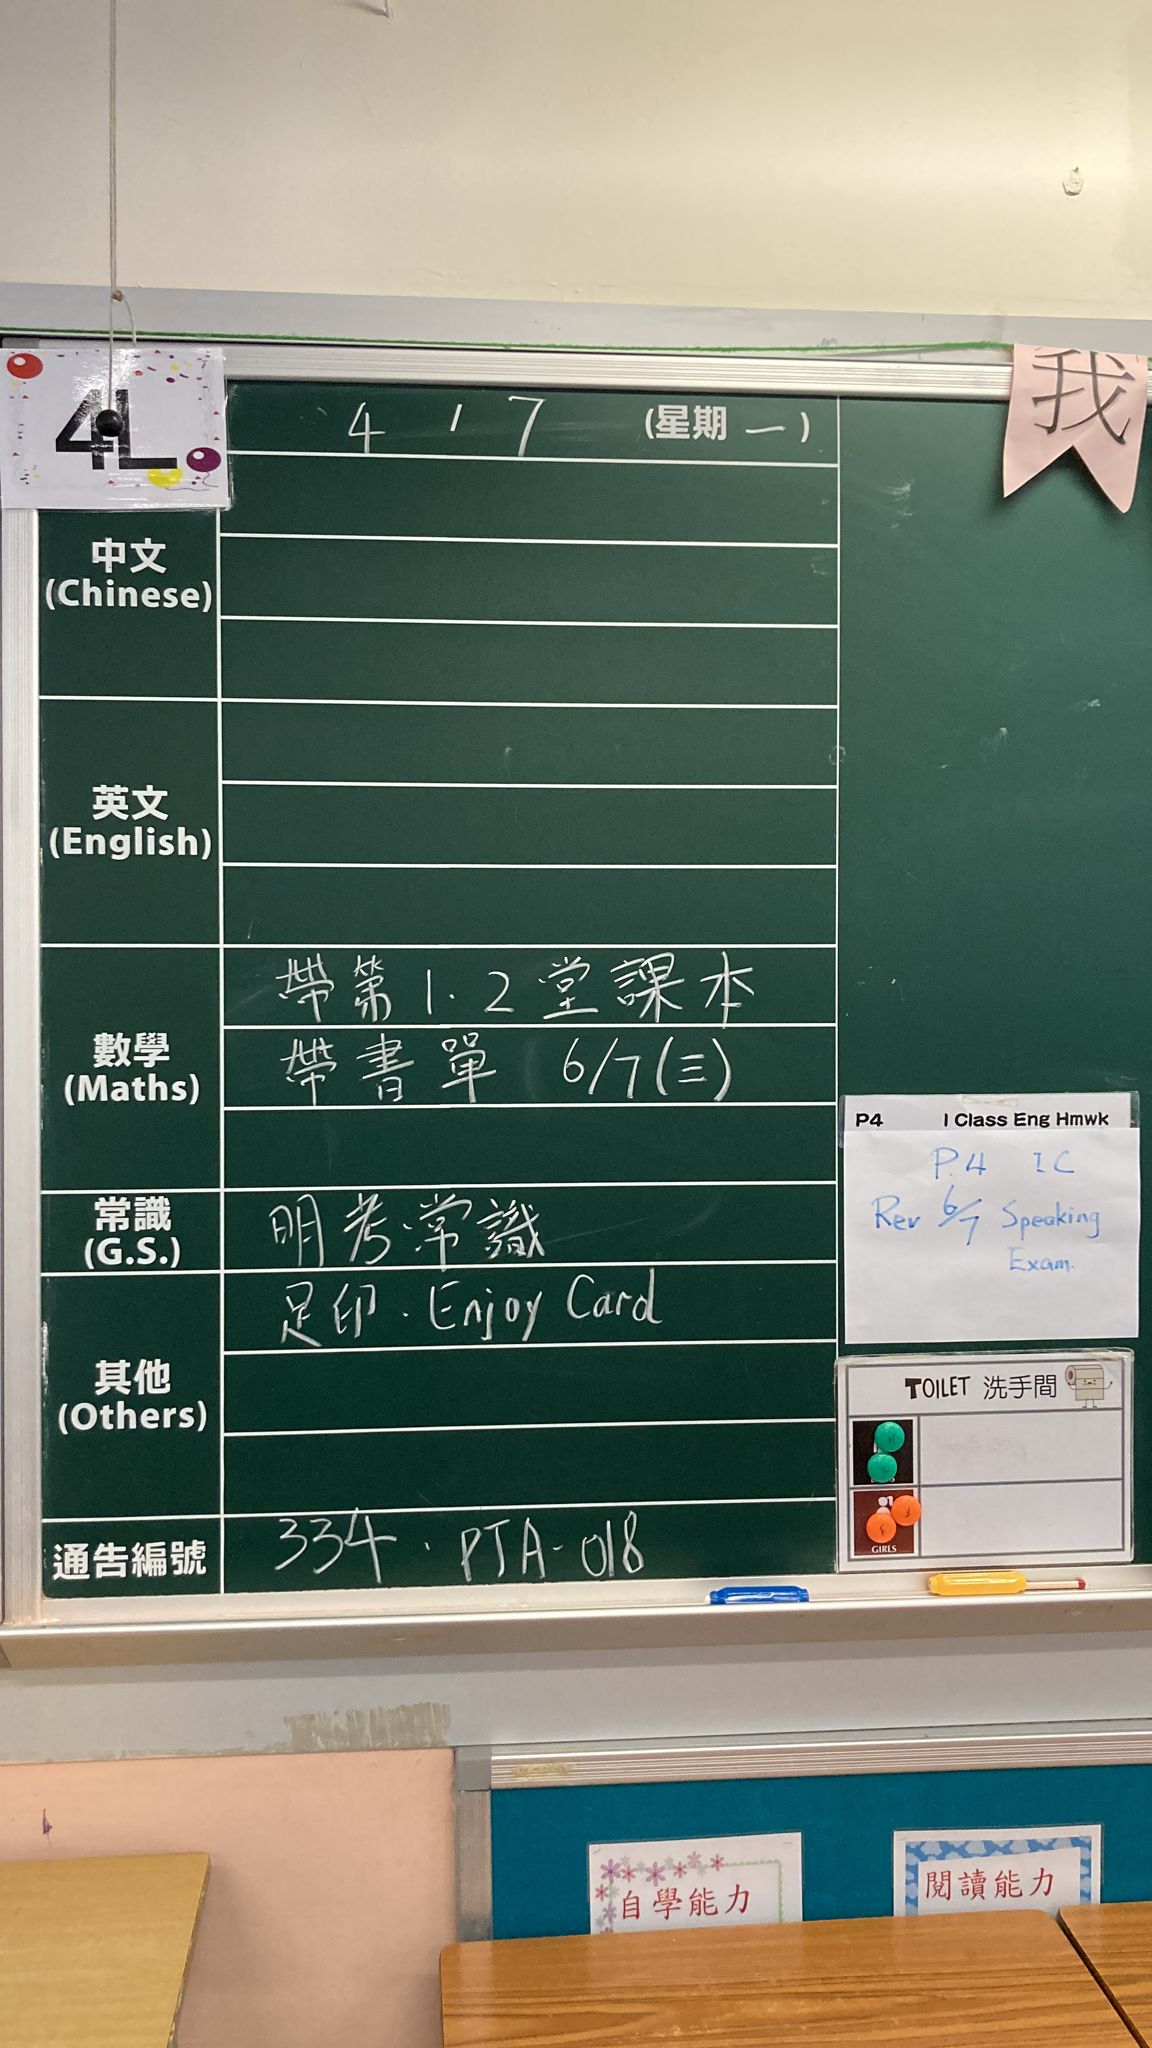 4L
4 ' 7 (星期一)
我
中文
(Chinese)
英文
(English)
數學
(Maths)
帶第1.2堂課本
帶書單 6/7(三)
常識
(G.S.)
明考常識
其他
(Others)
足印.Enjoy Card
通告編號
334.PTA-018
P4 I Class Eng Hmwk
P.4 IC
Rev 6/7 Speaking
Exam.
TOILET 洗手間
GIRLS
自學能力
閱讀能力